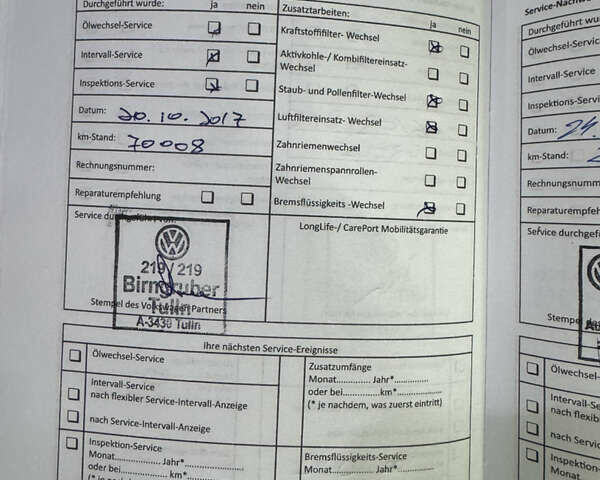 Durchgeführt wurde: ja nein
Ölwechsel-Service
Intervall-Service
Inspektions-Service
Datum: 20.10.2017
km-Stand: 70008
Rechnungsnummer:
Reparaturempfehlung
Service durchgeführt von:
219/219
Birngruber
Tulln
A-3430 Tulln
Stempel des Volkswagen Partners
Zusatzarbeiten:
ja nein
Kraftstofffilter- Wechsel
Aktivkohle-/ Kombifiltereinsatz-
Wechsel
Staub- und Pollenfilter-Wechsel
Luftfiltereinsatz- Wechsel
Zahnriemenwechsel
Zahnriemenspannrollen-
Wechsel
Bremsflüssigkeits -Wechsel
LongLife-/ CarePort Mobilitätsgarantie
Ihre nächsten Service-Ereignisse
Ölwechsel-Service
Intervall-Service
nach flexibler Service-Intervall-Anzeige
nach Service-Intervall-Anzeige
Inspektion-Service
Monat............... Jahr*...............
oder bei............... km*...............
(* je nachdem, was
Zusatzumfänge
Monat............ Jahr*...............
oder bei............km*...............
(* je nachdem, was zuerst eintritt)
Bremsflüssigkeits-Service
Monat............ Jahr*...............
Service-Nachw
Durchgeführt
Ölwechsel-Service
Intervall-Service
Inspektions-Servic
Datum: 24.
km-Stand:
Rechnungsnumm
Reparaturempfeh
Service durchgefü
Stempe
Ölwechsel-
Intervall-Se
nach flexibl
nach Servic
Inspektion-
Monat